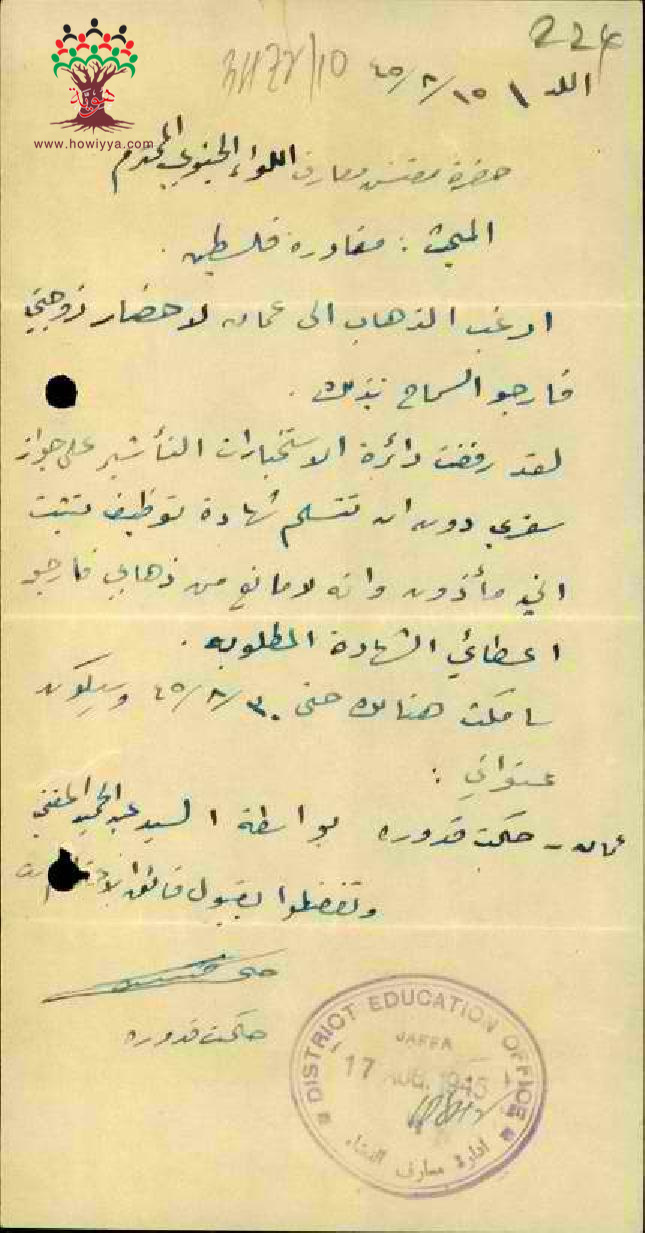 224
31172/10
اللد ١٥/٨/٤٥
هوية
www.howiyya.com
حضرة مفتش معارف اللواء الجنوبي المحترم
المبحث : مغادرة فلسطين .
ارغب الذهاب الى عمان لاحضار زوجتي
فارجو السماح بذلك .
لقد رفضت دائرة الاستخبارات التأشير على جواز
سفري دون ان تتسلم شهادة توظيف تثبت
اني مأذون وانه لا مانع من ذهابي فارجو
اعطائي الشهادة المطلوبه .
سامكث هنالك حتى ٣٠/٨/٤٥ وسيكون
عنواني :
عمان - حكمت قدوره بواسطة السيد عبد الحميد المفتي
وتفضلوا بقبول فائق الاحترام
حكمت قدوره
DISTRICT EDUCATION OFFICE
JAFFA
17 AUG. 1945
ادارة معارف القضاء